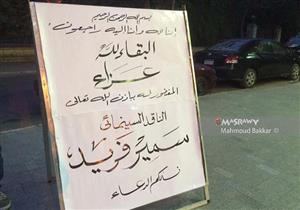 بسم الله الرحمن الرحيم
إنا لله وإنا إليه راجعون
البقاء لله
عزاء
المغفور له بإذن الله تعالى
الناقد السينمائي
سمير فريد
نسألكم الدعاء
MASRAWY
Mahmoud Bakkar ©